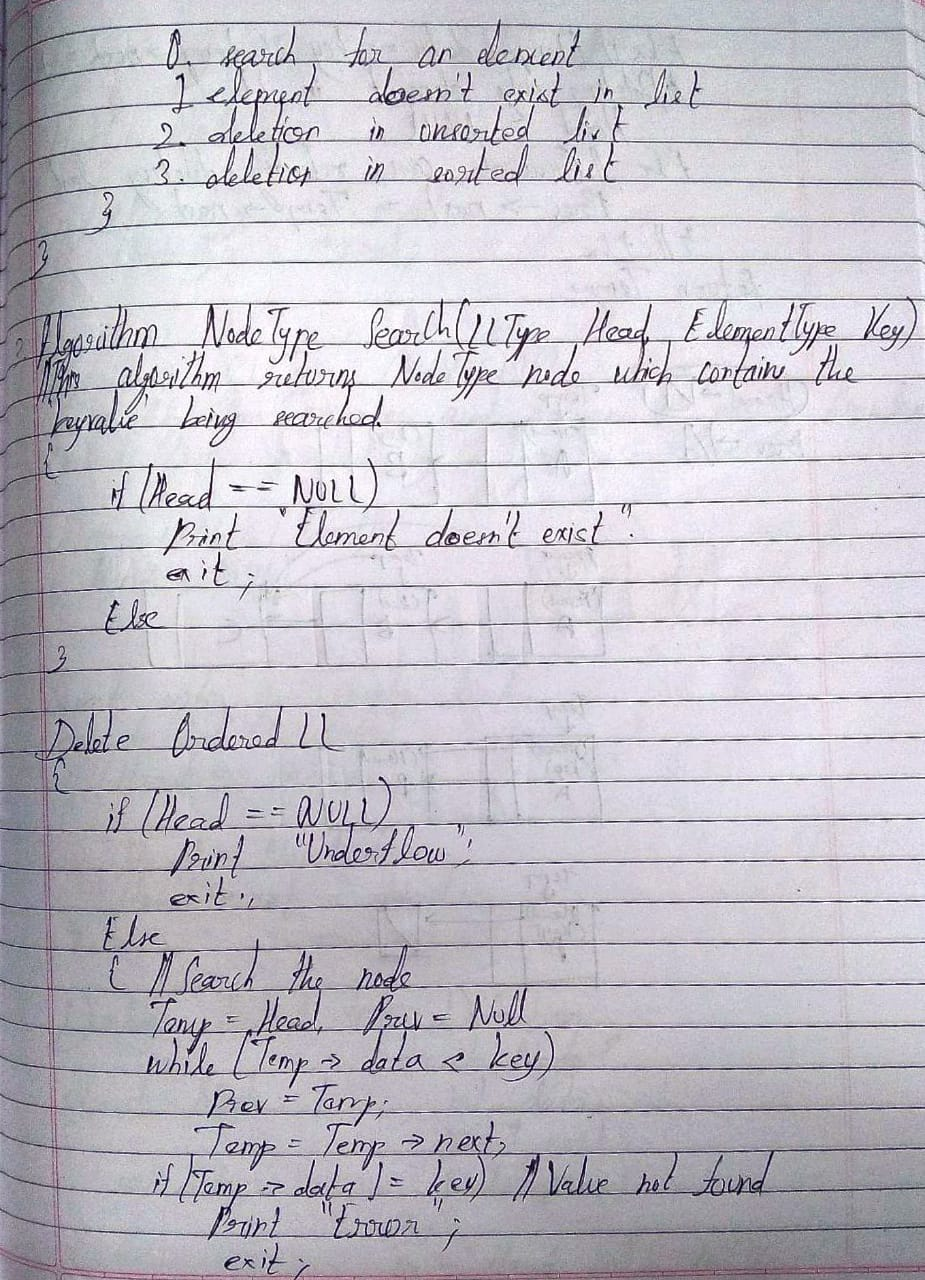 0. search for an element
1 element doesn't exist in list
2. deletion in unsorted list
3. deletion in sorted list
}
}
Algorithm NodeType Search(LLType Head, ElementType Key)
//This algorithm returns NodeType node which contains the
keyvalue being searched.
{
if (Head == NULL)
Print "Element doesn't exist".
exit;
Else
}
Delete Ordered LL
{
if (Head == NULL)
Print "Underflow";
exit;
Else
{ // Search the node
Temp = Head, Prev = Null
while (Temp → data < key)
Prev = Temp;
Temp = Temp → next;
if (Temp → data != key) // Value not found
Print "Error";
exit;